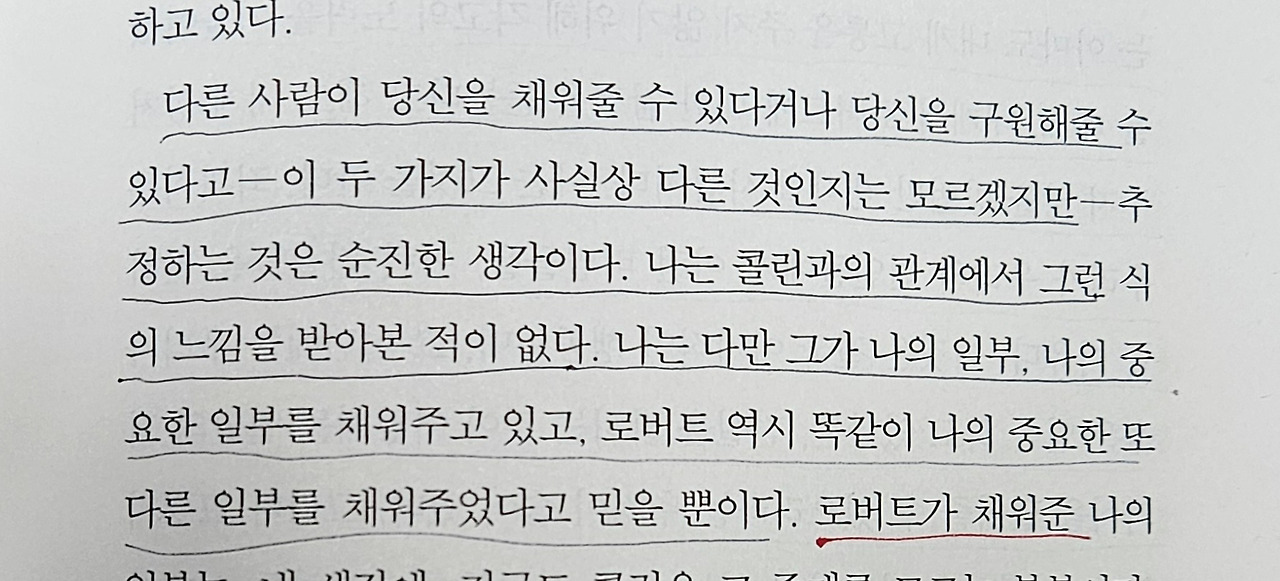 하고 있다.
다른 사람이 당신을 채워줄 수 있다거나 당신을 구원해줄 수
있다고—이 두 가지가 사실상 다른 것인지는 모르겠지만—추
정하는 것은 순진한 생각이다. 나는 콜린과의 관계에서 그런 식
의 느낌을 받아본 적이 없다. 나는 다만 그가 나의 일부, 나의 중
요한 일부를 채워주고 있고, 로버트 역시 똑같이 나의 중요한 또
다른 일부를 채워주었다고 믿을 뿐이다. 로버트가 채워준 나의